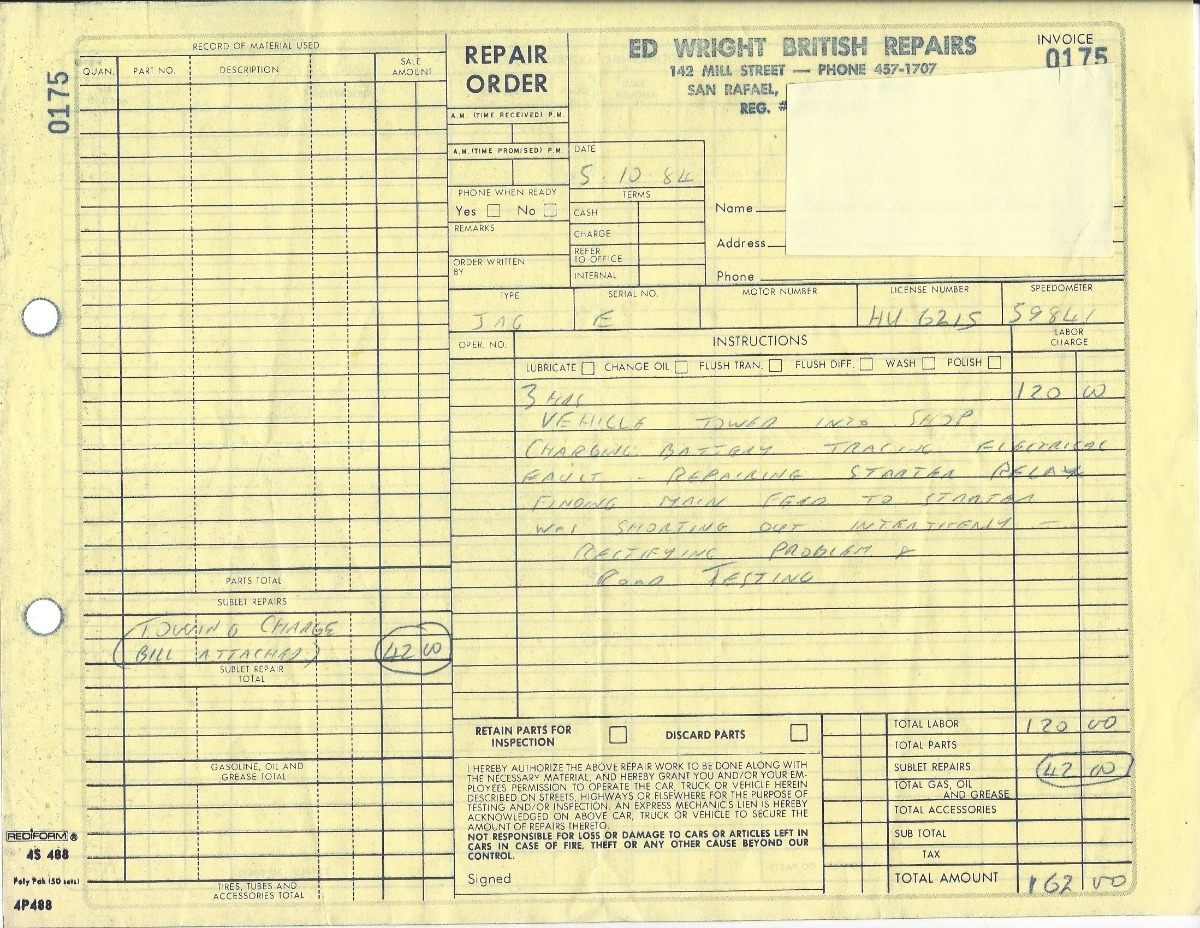 RECORD OF MATERIAL USED
QUAN. PART NO. DESCRIPTION SALE AMOUNT
0175
REPAIR ORDER
ED WRIGHT BRITISH REPAIRS
142 MILL STREET — PHONE 457-1707
SAN RAFAEL,
REG. #
INVOICE
0175
A.M. (TIME RECEIVED) P.M.
A.M. (TIME PROMISED) P.M.
DATE
5-10 84
PHONE WHEN READY
Yes No
TERMS
CASH
CHARGE
REFER TO OFFICE
INTERNAL
REMARKS
ORDER WRITTEN BY
Name
Address
Phone
TYPE SERIAL NO. MOTOR NUMBER LICENSE NUMBER SPEEDOMETER
JAG E HU 6215 59841
OPER. NO. INSTRUCTIONS LABOR CHARGE
LUBRICATE CHANGE OIL FLUSH TRAN. FLUSH DIFF. WASH POLISH
3 HRS 120 00
VEHICLE TOWED INTO SHOP
CHARGING BATTERY TRACING ELECTRICAL
FAULT - REPAIRING STARTER RELAY
FINDING MAIN FEED TO STARTER
WAS SHORTING OUT —
RECTIFYING PROBLEM &
ROAD TESTING
PARTS TOTAL
SUBLET REPAIRS
(TOWING CHARGE
BILL ATTACHED) 42 00
SUBLET REPAIR TOTAL
GASOLINE, OIL AND GREASE TOTAL
TIRES, TUBES AND ACCESSORIES TOTAL
RETAIN PARTS FOR INSPECTION DISCARD PARTS
I HEREBY AUTHORIZE THE ABOVE REPAIR WORK TO BE DONE ALONG WITH
THE NECESSARY MATERIAL, AND HEREBY GRANT YOU AND/OR YOUR EM-
PLOYEES PERMISSION TO OPERATE THE CAR, TRUCK OR VEHICLE HEREIN
DESCRIBED ON STREETS, HIGHWAYS OR ELSEWHERE FOR THE PURPOSE OF
TESTING AND/OR INSPECTION. AN EXPRESS MECHANICS LIEN IS HEREBY
ACKNOWLEDGED ON ABOVE CAR, TRUCK OR VEHICLE TO SECURE THE
AMOUNT OF REPAIRS THERETO.
NOT RESPONSIBLE FOR LOSS OR DAMAGE TO CARS OR ARTICLES LEFT IN
CARS IN CASE OF FIRE, THEFT OR ANY OTHER CAUSE BEYOND OUR
CONTROL.
Signed
TOTAL LABOR 120 00
TOTAL PARTS
SUBLET REPAIRS 42 00
TOTAL GAS, OIL AND GREASE
TOTAL ACCESSORIES
SUB TOTAL
TAX
TOTAL AMOUNT 162 00
REDIFORM ®
4S 488
Poly Pak (50 sets)
4P488